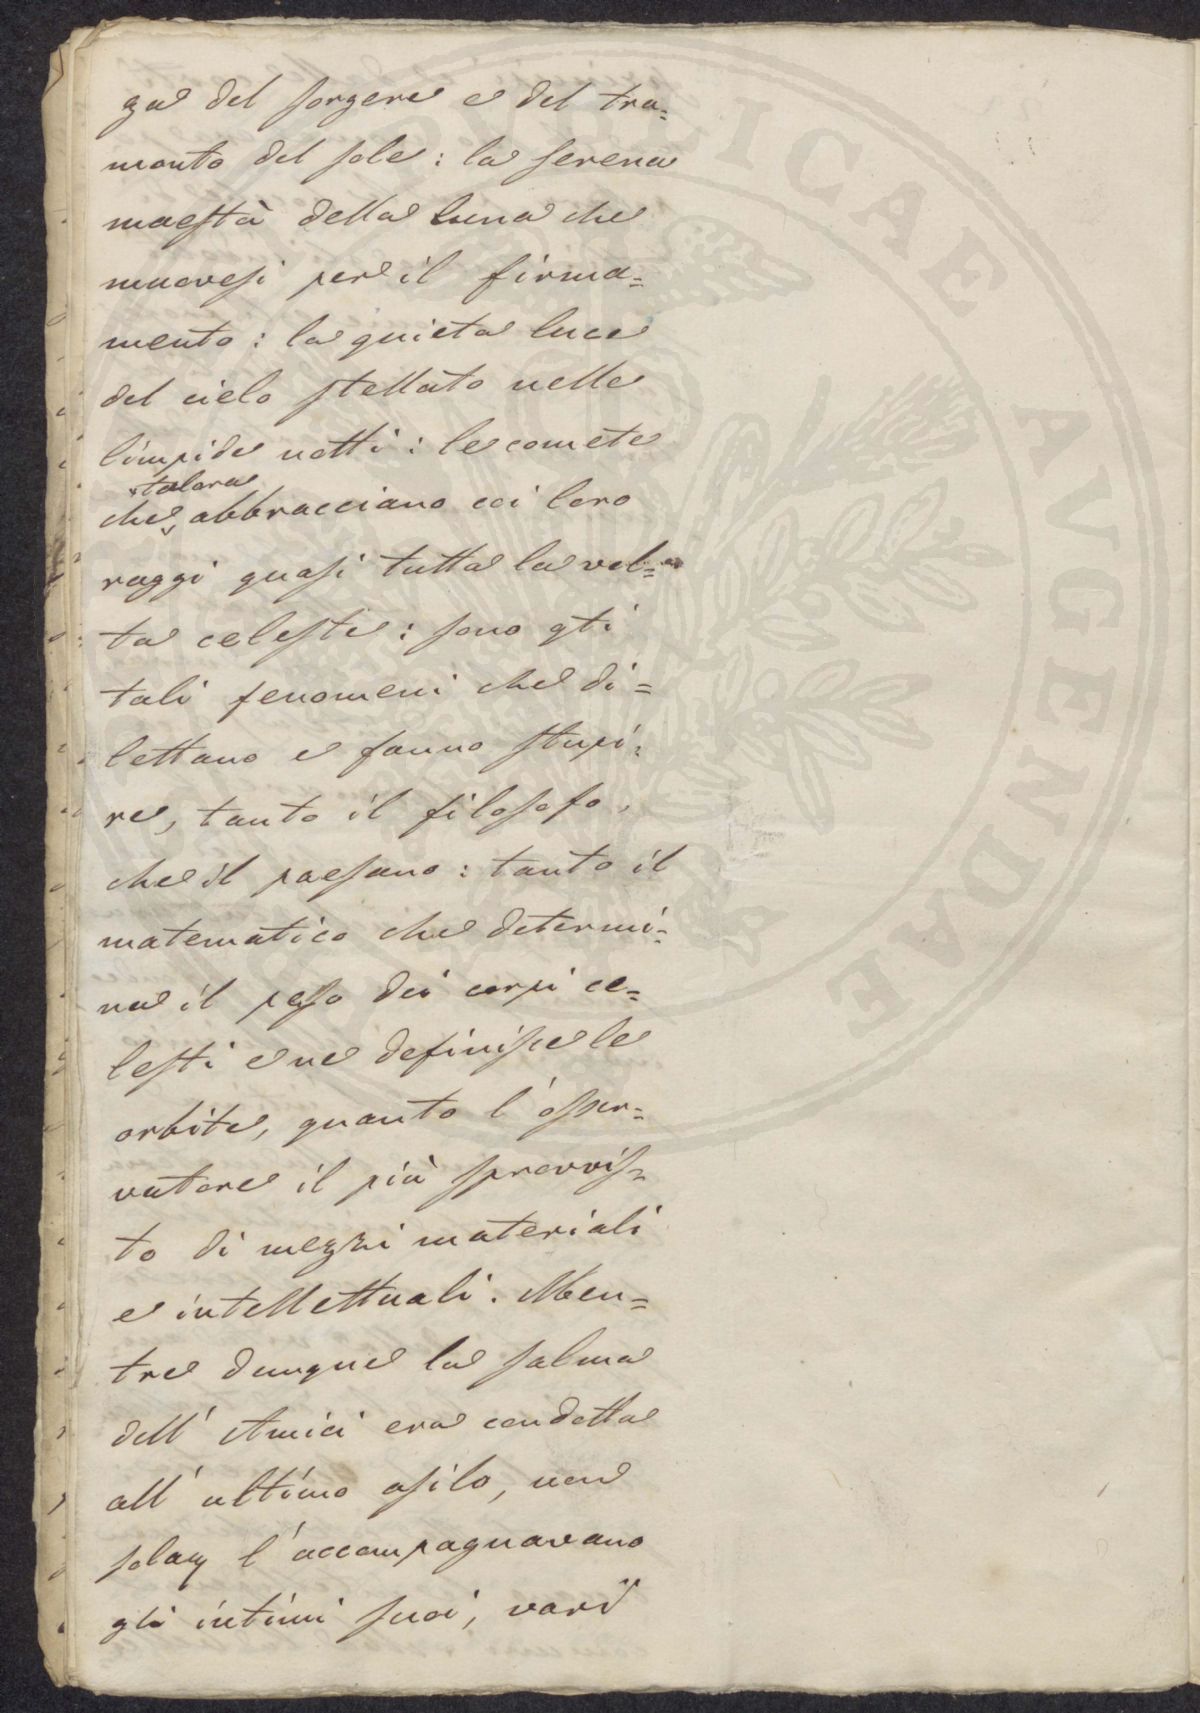 za del sorgere e del tra=
monto del sole: la serena
maestà della luna che
muovesi per il firma=
mento: la quieta luce
del cielo stellato nelle
limpide notti: le comete
talora
che abbracciano coi loro
raggi quasi tutta la vol=
ta celeste: sono qti
tali fenomeni che di=
lettano e fanno stupi=
re, tanto il filosofo,
che il paesano: tanto il
matematico che determi=
na il peso dei corpi ce=
lesti e ne definisce le
orbite, quanto l'osser=
vatore il più sprovvis=
to di mezzi materiali
e intellettuali. Men=
tre dunque la salma
dell'Amici era condotta
all'ultimo asilo, non
solam l'accompagnavano
gli intimi suoi, varii
PVBLICAE AVGENDAE